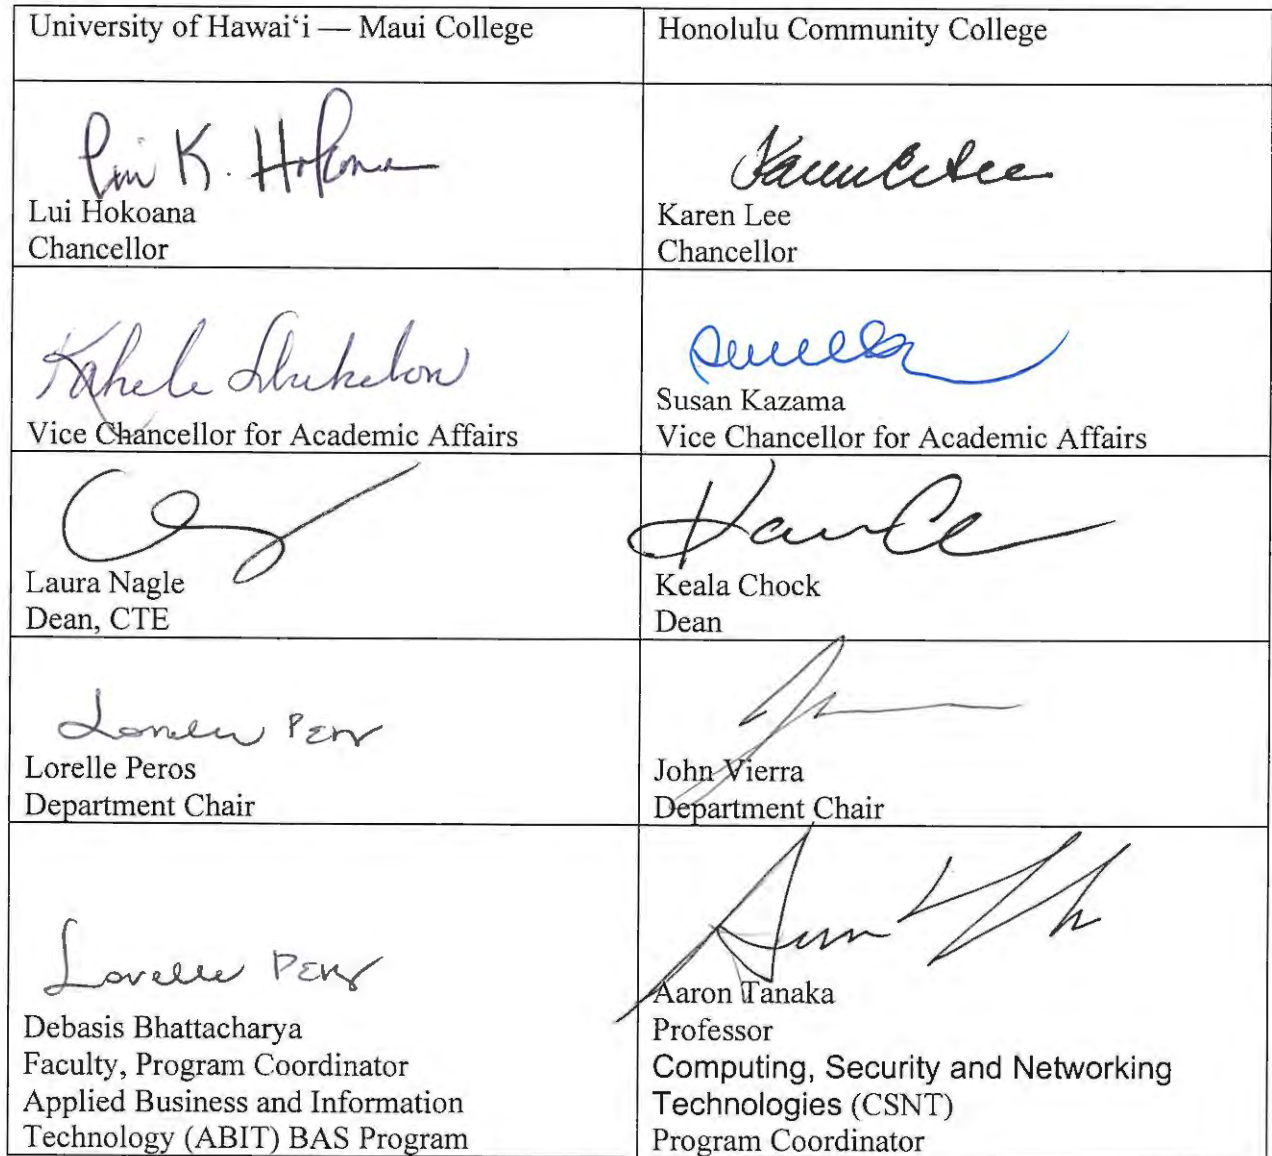 University of Hawai‘i — Maui College
Honolulu Community College
Lui K. Hokoana
Lui Hokoana
Chancellor
Karen Lee
Chancellor
Kahele Dukelow
Vice Chancellor for Academic Affairs
Susan Kazama
Vice Chancellor for Academic Affairs
Laura Nagle
Dean, CTE
Keala Chock
Dean
Lorelle Peros
Lorelle Peros
Department Chair
John Vierra
Department Chair
Lorelle Peros
Debasis Bhattacharya
Faculty, Program Coordinator
Applied Business and Information
Technology (ABIT) BAS Program
Aaron Tanaka
Professor
Computing, Security and Networking
Technologies (CSNT)
Program Coordinator